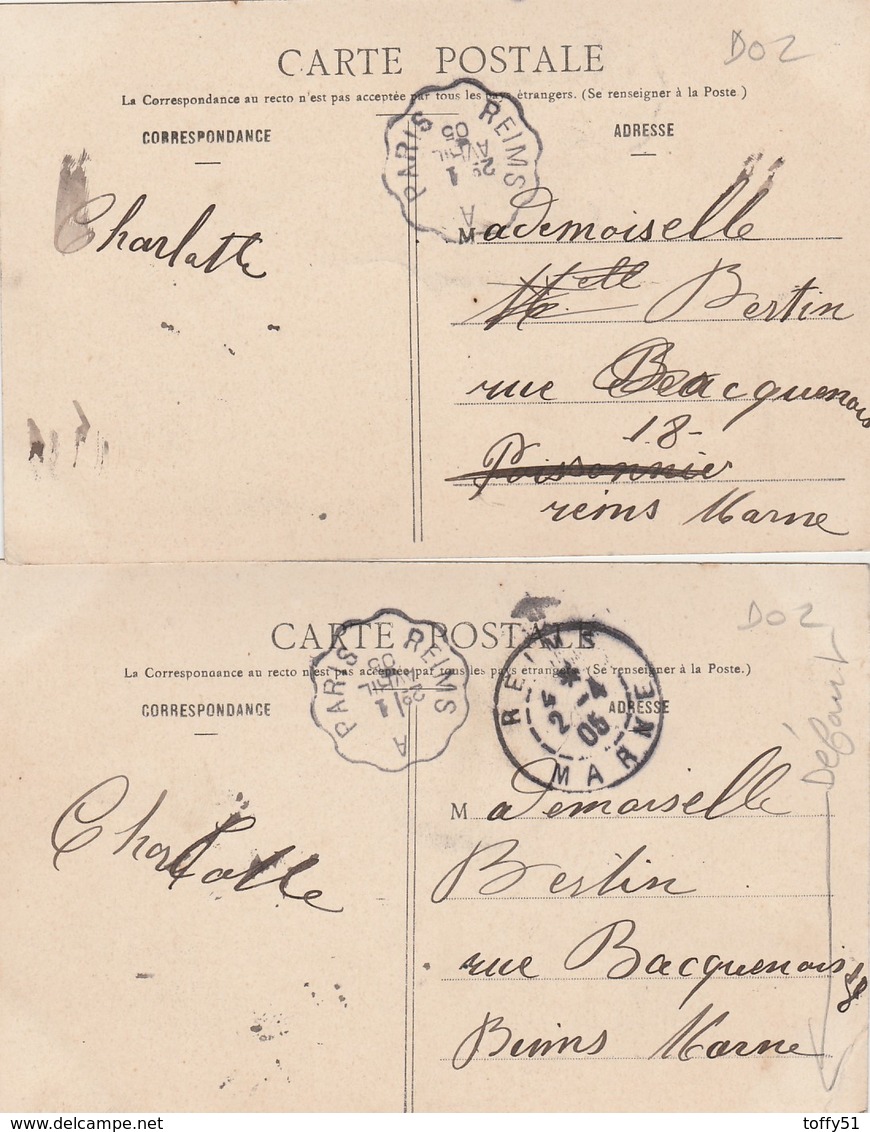 CARTE POSTALE
D02
La Correspondance au recto n'est pas acceptée par tous les pays étrangers. (Se renseigner à la Poste.)
CORRESPONDANCE
ADRESSE
PARIS REIMS
2º
1
AVRIL
05
A
Charlotte
Mademoiselle
Melle Bertin
rue Bacquenois
18-
Poissonnier
reims Marne
CARTE POSTALE
D02
La Correspondance au recto n'est pas acceptée par tous les pays étrangers. (Se renseigner à la Poste.)
CORRESPONDANCE
ADRESSE
PARIS REIMS
2º
1
A
REIMS
25
4
05
MARNE
Défaut
Charlotte
Mademoiselle
Bertin
rue Bacquenois 18
Reims Marne
delcampe.net
toffy51